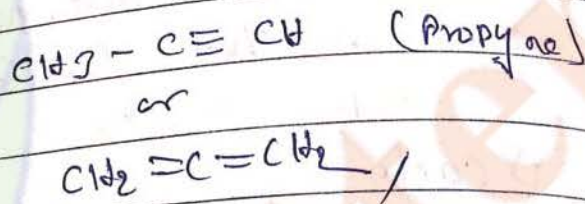 CH3 - C ≡ CH (Propyne)
or
CH2 = C = CH2